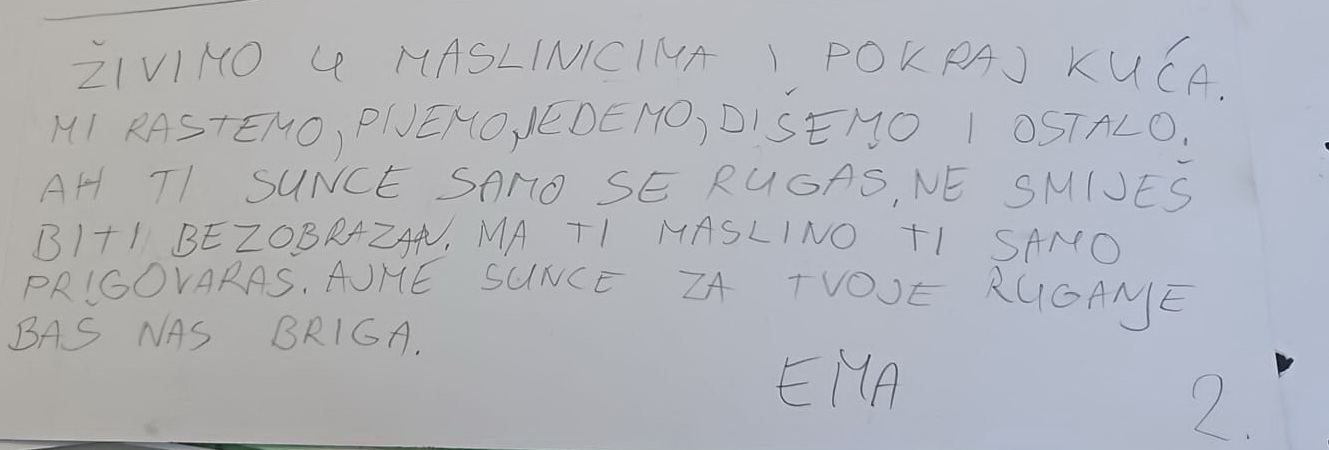 ŽIVIMO U MASLINICIMA I POKRAJ KUĆA.
MI RASTEMO, PIJEMO, JEDEMO, DIŠEMO I OSTALO.
AH TI SUNCE SAMO SE RUGAS, NE SMIJEŠ
BITI BEZOBRAZAN. MA TI MASLINO TI SAMO
PRIGOVARAS. AJME SUNCE ZA TVOJE RUGANJE
BAŠ NAS BRIGA.
EMA
2.